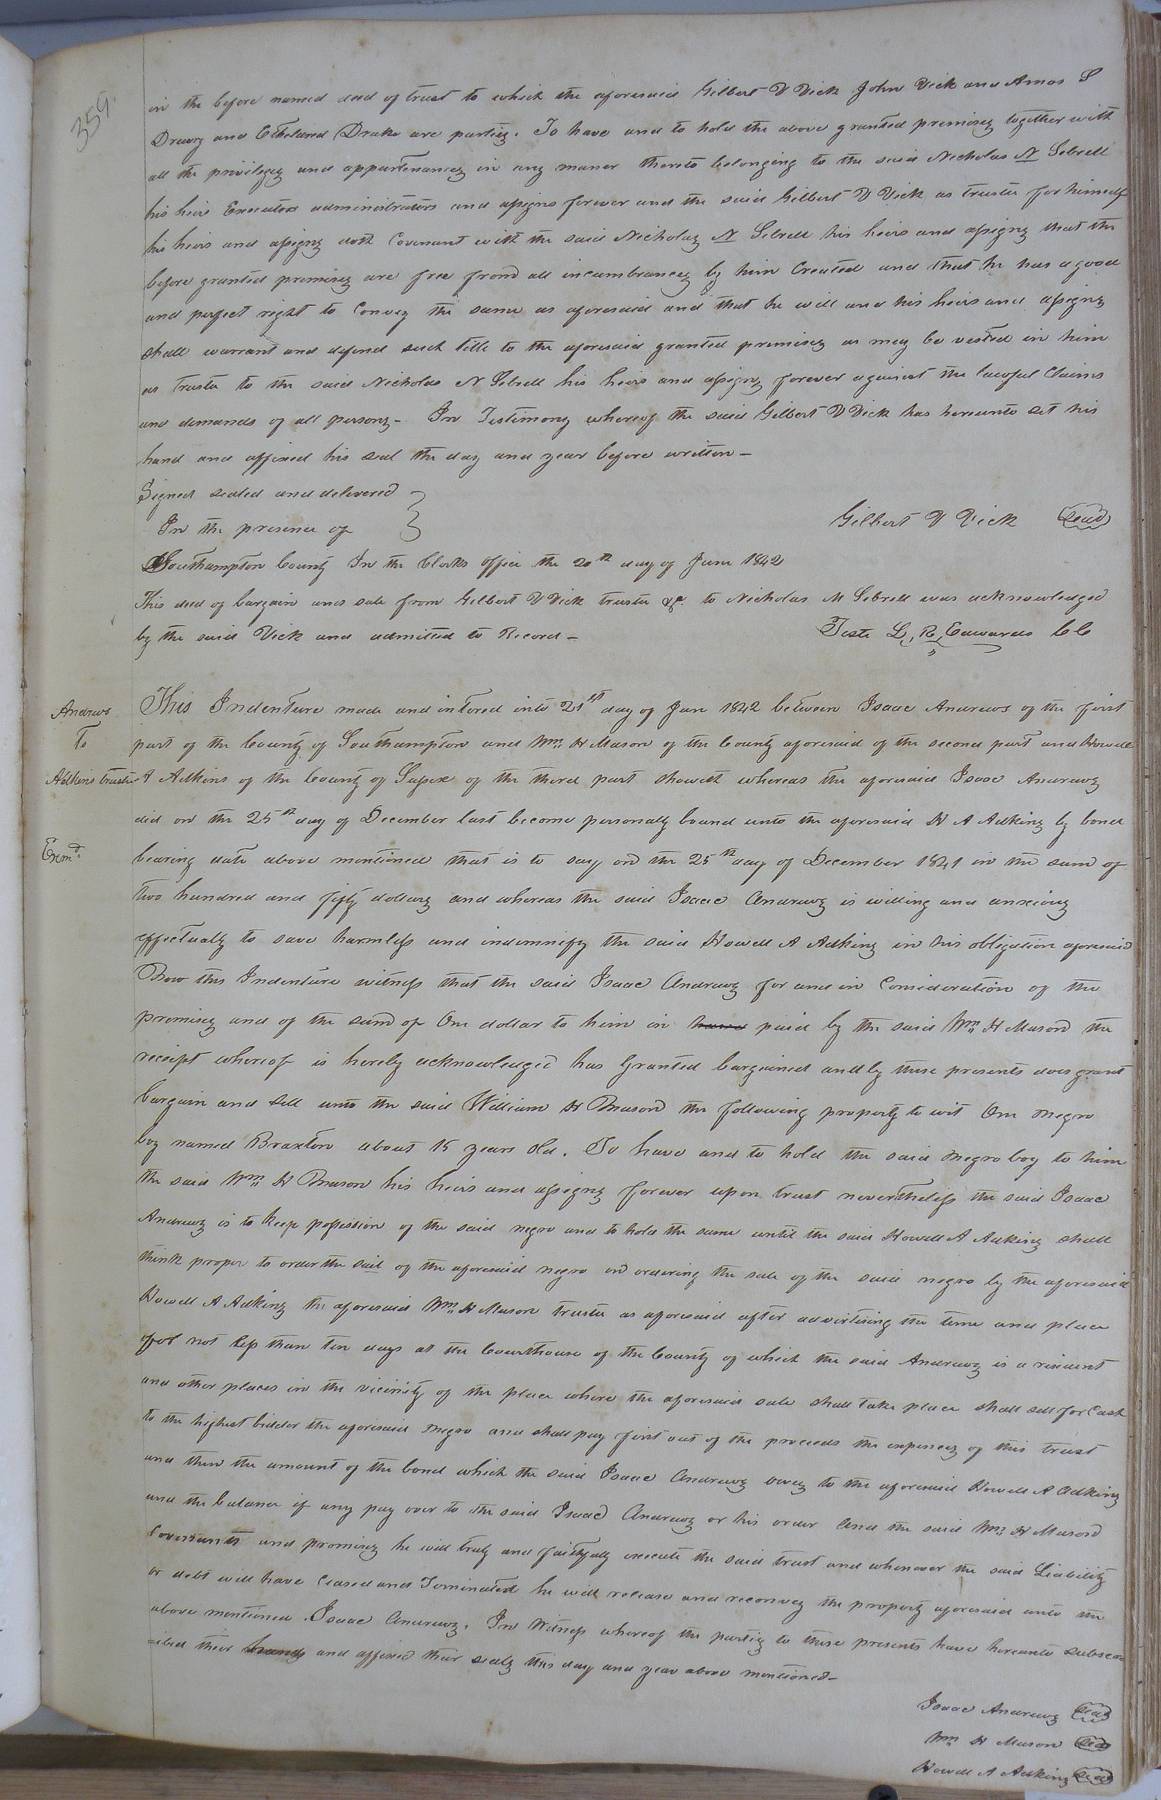 359.
in the before named deed of trust to which the aforesaid Gilbert V Vick John Vick and Amos S
Drewry and Etheldred Drake are parties. To have and to hold the above granted premises together with
all the privileges and appurtenances in any maner thereto belonging to the said Nicholas N Sebrell
his heirs Executors administrators and assigns forever and the said Gilbert V Vick as trustee for himself
his heirs and assigns doth Covenant with the said Nicholas N Sebrell his heirs and assigns that the
before granted premises are free from all incumbrances by him Created and that he has a good
and perfect right to Convey the same as aforesaid and that he will and his heirs and assigns
shall warrant and defend such title to the aforesaid granted premises as may be vested in him
as trustee to the said Nicholas N Sebrell his heirs and assigns forever against the lawful Claims
and demands of all persons - In Testimony whereof the said Gilbert V Vick has hereunto set his
hand and affixed his seal the day and year before written -
Signed sealed and delivered
In the presence of
Gilbert V Vick Seal
Southampton County In the Clerks Office the 20th day of June 1842
This deed of bargain and sale from Gilbert V Vick trustee &c. to Nicholas M Sebrell was acknowledged
by the said Vick and admitted to Record -
Teste L, R, Edwards CC
Andrews
To
Adkins trustee
Exmd.
This Indenture made and intered into 21st day of June 1842 between Isaac Andrews of the first
part of the County of Southampton and Wm. H Mason of the County aforesaid of the second part and Howell
A Adkins of the County of Sussex of the third part showeth whereas the aforesaid Isaac Andrews
did on the 25th day of December last become personally bound unto the aforesaid H A Adkins by bond
bearing date above mentioned that is to say on the 25th day of December 1841 in the sum of
two hundred and fifty dollars and whereas the said Isaac Andrews is willing and anxious
effectually to save harmless and indemnify the said Howell A Adkins in his obligation aforesaid
Now this Indenture witness that the said Isaac Andrews for and in Consideration of the
promises and of the sum of One dollar to him in hand paid by the said Wm. H Mason the
receipt whereof is hereby acknowledged has Granted bargained and by these presents does grant
bargain and sell unto the said William H Mason the following property to wit One negro
boy named Braxton about 15 years old. To have and to hold the said negro boy to him
the said Wm. H Mason his heirs and assigns forever upon trust nevertheless the said Isaac
Andrews is to keep possession of the said negro and to hold the same until the said Howell A Adkins shall
think proper to order the sail of the aforesaid negro on ordering the sale of the said negro by the aforesaid
Howell A Adkins the aforesaid Wm. H Mason trustee as aforesaid after advertising the time and place
for not less than ten days at the Courthouse of the County of which the said Andrews is a resident
and other places in the vicinity of the place where the aforesaid sale shall take place shall sell for Cash
to the highest bidder the aforesaid negro and shall pay first out of the proceeds the expences of this trust
and then the amount of the bond which the said Isaac Andrews owes to the aforesaid Howell A Adkins
and the balance if any pay over to the said Isaac Andrews or his order And the said Wm. H Mason
Covenants and promises he will truly and faithfully execute the said trust and whenever the said Liability
or debt will have Ceased and Terminated he will release and reconvey the property aforesaid unto the
above mentioned Isaac Andrews. In Witness whereof the parties to these presents have hereunto subscr
ibed their hands and affixed their seals this day and year above mentioned -
Isaac Andrews Seal
Wm H Mason Seal
Howell A Adkins Seal